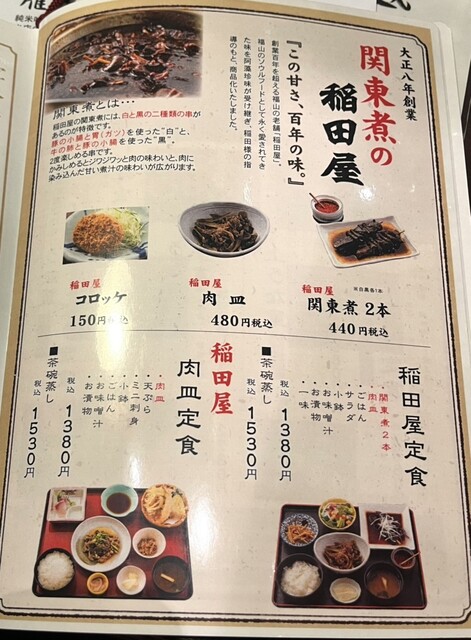 純米
大正八年創業
関東煮の
稲田屋
『この甘さ、百年の味。』
創業百年を超える福山の老舗「稲田屋」。
福山のソウルフードとして永く愛されてき
た味を阿藻珍味が受け継ぎ、稲田様の指
導のもと、商品化いたしました。
関東煮とは…
稲田屋の関東煮には、白と黒の二種類の串が
あるのが特徴です。
豚の小腸と胃(ガツ)を使った"白"と、
牛の肺と豚の小腸を使った"黒"。
2度楽しめる串です。
かみしめるとジワジワッと肉の味わいと、肉に
染み込んだ甘い煮汁の味わいが広がります。
稲田屋
コロッケ
150円税込
稲田屋
肉皿
480円税込
稲田屋
※白黒各1本
関東煮2本
440円税込
稲田屋定食
・関東煮2本
・肉皿
・ごはん
・サラダ
・小鉢
・お味噌汁
・お漬物
・一味
税込 1380円
■茶碗蒸し
税込 1530円
稲田屋
肉皿定食
・肉皿
・天ぷら
・ミニ刺身
・小鉢
・ごはん
・お味噌汁
・お漬物
税込 1380円
■茶碗蒸し
税込 1530円